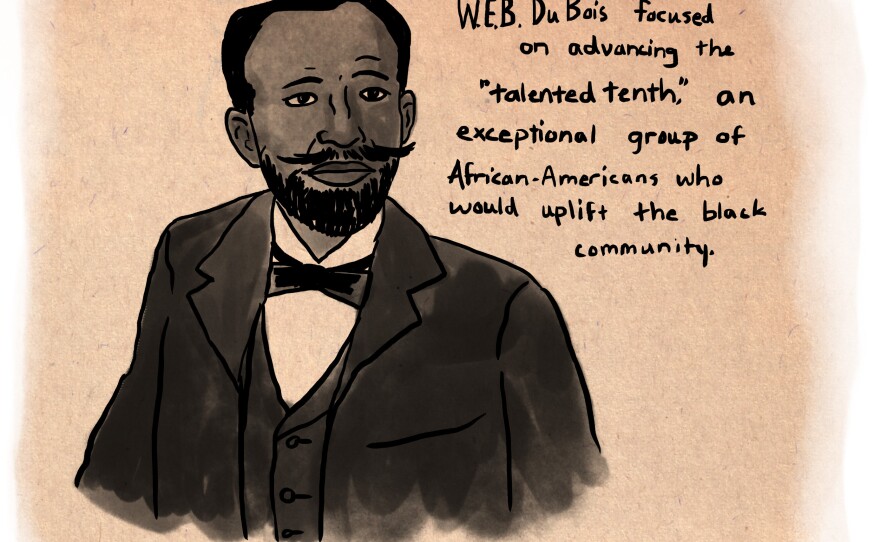 W.E.B. Du Bois focused
on advancing the
"talented tenth," an
exceptional group of
African-Americans who
would uplift the black
community.